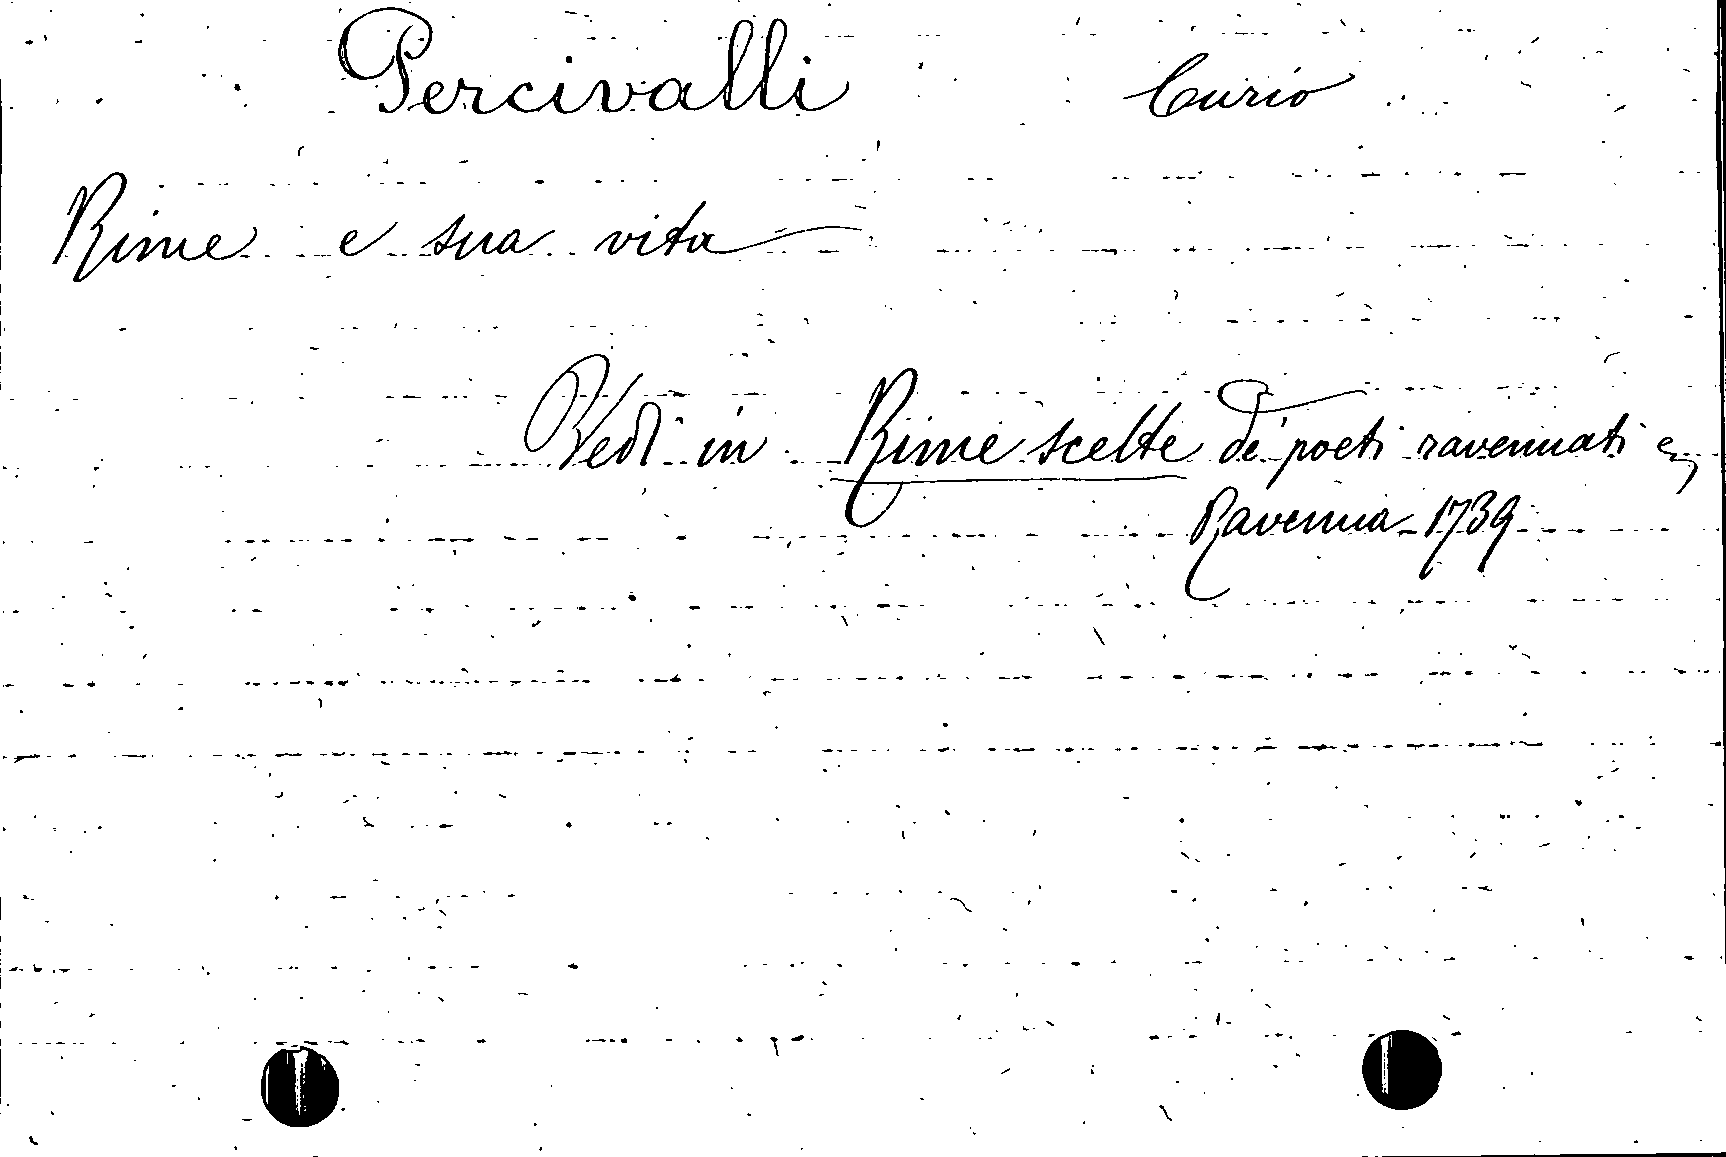 Percivalli Curio
Rime e sua vita
Vedi in Rime scelte de' poeti ravennati
Ravenna - 1739